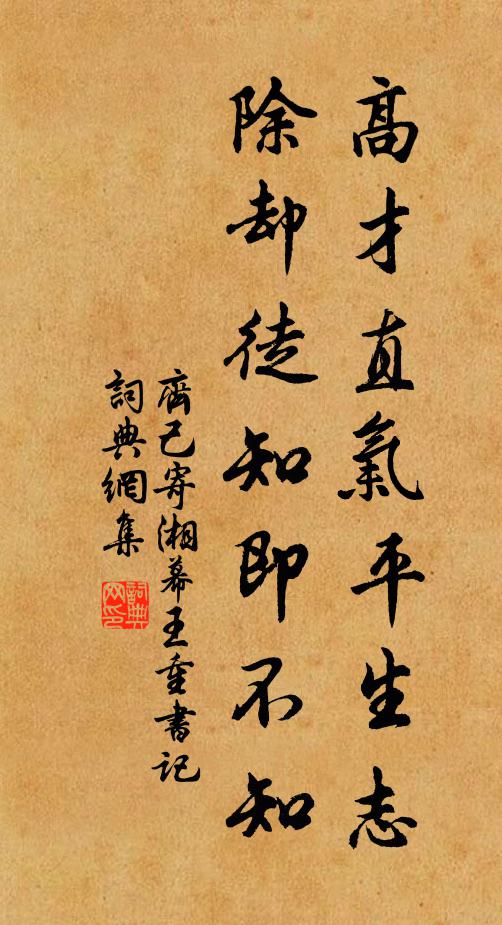 高才直氣平生志
除却徒知即不知
齊己寄湘幕王重書記
詞典網集
詞典
网印